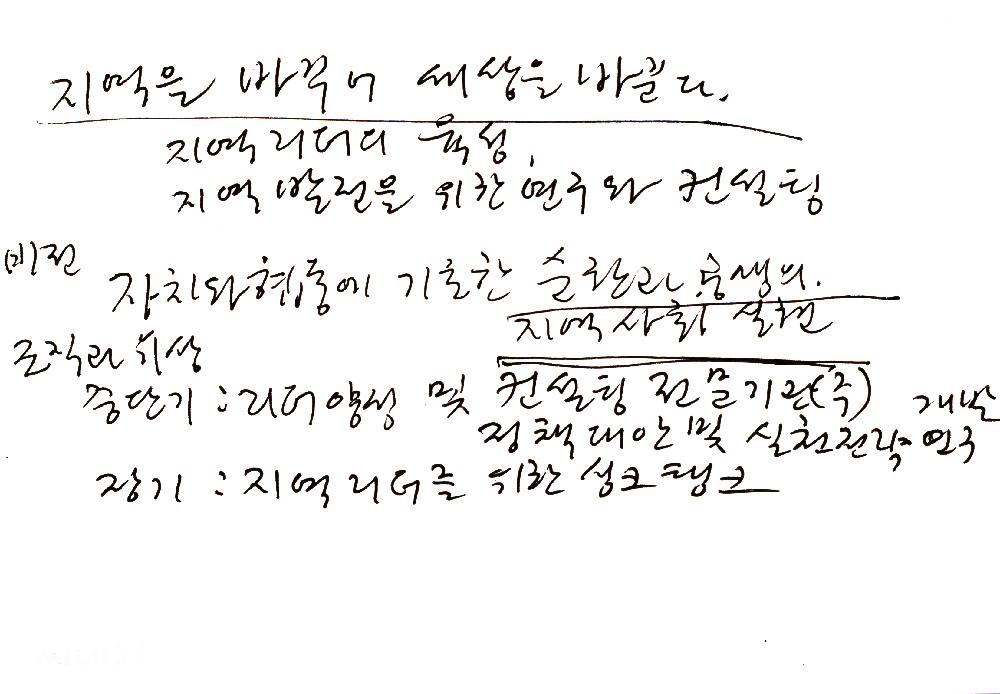 지역을 바꾸어 세상을 바꾼다.
지역리더의 육성,
지역발전을 위한 연구와 컨설팅
비전
자치와 협동에 기초한 순환과 공생의.
지역사회 실현
조직과 위상
중단기 : 리더양성 및 컨설팅 전문기관(주)
정책대안 및 실천전략 연구 개발
장기 : 지역리더를 위한 싱크탱크